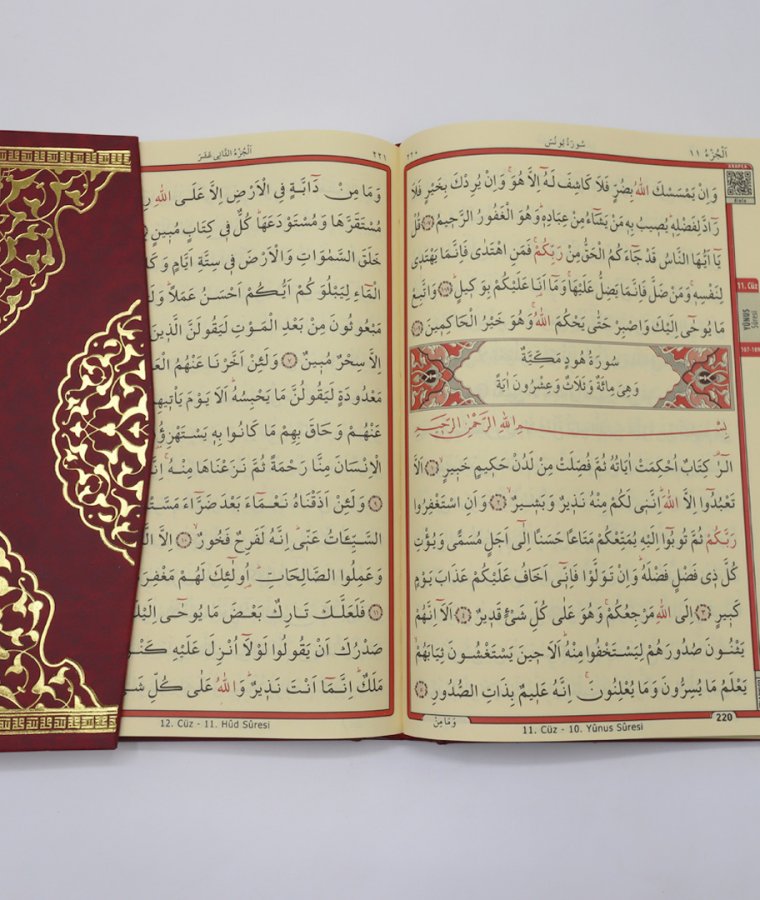 اَلْجُزْءُ ١١
سُورَةُ يُونُسَ
٢٢٠
وَاِنْ يَمْسَسْكَ اللّٰهُ بِضُرٍّ فَلَا كَاشِفَ لَهُٓ اِلَّا هُوَۚ وَاِنْ يُرِدْكَ بِخَيْرٍ فَلَا
رَٓادَّ لِفَضْلِه۪ۜ يُص۪يبُ بِه۪ مَنْ يَشَٓاءُ مِنْ عِبَادِه۪ۜ وَهُوَ الْغَفُورُ الرَّح۪يمُ ﴿١٠٧﴾ قُلْ
يَٓا اَيُّهَا النَّاسُ قَدْ جَٓاءَكُمُ الْحَقُّ مِنْ رَبِّكُمْۚ فَمَنِ اهْتَدٰى فَاِنَّمَا يَهْتَد۪ي
لِنَفْسِه۪ۚ وَمَنْ ضَلَّ فَاِنَّمَا يَضِلُّ عَلَيْهَاۚ وَمَٓا اَنَا۬ عَلَيْكُمْ بِوَك۪يلٍۜ ﴿١٠٨﴾ وَاتَّبِعْ
مَا يُوحٰٓى اِلَيْكَ وَاصْبِرْ حَتّٰى يَحْكُمَ اللّٰهُۚ وَهُوَ خَيْرُ الْحَاكِم۪ينَ ﴿١٠٩﴾
سُورَةُ هُودٍ مَكِّيَّةٌ
وَهِيَ مِائَةٌ وَثَلَاثٌ وَعِشْرُونَ اٰيَةً
بِسْمِ اللّٰهِ الرَّحْمٰنِ الرَّح۪يمِ
الٓرٰ۠ كِتَابٌ اُحْكِمَتْ اٰيَاتُهُ ثُمَّ فُصِّلَتْ مِنْ لَدُنْ حَك۪يمٍ خَب۪يرٍۙ ﴿١﴾ اَلَّا
تَعْبُدُٓوا اِلَّا اللّٰهَۜ اِنَّن۪ي لَكُمْ مِنْهُ نَذ۪يرٌ وَبَش۪يرٌۙ ﴿٢﴾ وَاَنِ اسْتَغْفِرُوا
رَبَّكُمْ ثُمَّ تُوبُٓوا اِلَيْهِ يُمَتِّعْكُمْ مَتَاعًا حَسَنًا اِلٰٓى اَجَلٍ مُسَمًّى وَيُؤْتِ
كُلَّ ذ۪ي فَضْلٍ فَضْلَهُۜ وَاِنْ تَوَلَّوْا فَاِنّ۪ٓي اَخَافُ عَلَيْكُمْ عَذَابَ يَوْمٍ
كَب۪يرٍ ﴿٣﴾ اِلَى اللّٰهِ مَرْجِعُكُمْۚ وَهُوَ عَلٰى كُلِّ شَيْءٍ قَد۪يرٌ ﴿٤﴾ اَلَٓا اِنَّهُمْ
يَثْنُونَ صُدُورَهُمْ لِيَسْتَخْفُوا مِنْهُۜ اَلَا ح۪ينَ يَسْتَغْشُونَ ثِيَابَهُمْۙ
يَعْلَمُ مَا يُسِرُّونَ وَمَا يُعْلِنُونَۚ اِنَّهُ عَل۪يمٌ بِذَاتِ الصُّدُورِ ﴿٥﴾
وَمَا مِنْ
220
11. Cüz - 10. Yûnus Sûresi
11. Cüz
YÛNUS
Sûresi
٢٢١
اَلْجُزْءُ الثَّانِي عَشَرَ
وَمَا مِنْ دَٓابَّةٍ فِي الْاَرْضِ اِلَّا عَلَى اللّٰهِ
مُسْتَقَرَّهَا وَمُسْتَوْدَعَهَاۜ كُلٌّ ف۪ي كِتَابٍ مُب۪ينٍ
خَلَقَ السَّمٰوَاتِ وَالْاَرْضَ ف۪ي سِتَّةِ اَيَّامٍ
الْمَٓاءِ لِيَبْلُوَكُمْ اَيُّكُمْ اَحْسَنُ عَمَلًاۜ
مَبْعُوثُونَ مِنْ بَعْدِ الْمَوْتِ لَيَقُولَنَّ الَّذ۪ينَ
اِلَّا سِحْرٌ مُب۪ينٌ ﴿٧﴾ وَلَئِنْ اَخَّرْنَا عَنْهُمُ
مَعْدُودَةٍ لَيَقُولُنَّ مَا يَحْبِسُهُۜ اَلَا يَوْمَ يَأْت۪يهِمْ
عَنْهُمْ وَحَاقَ بِهِمْ مَا كَانُوا بِه۪ يَسْتَهْزِؤُ۫نَ
الْاِنْسَانَ مِنَّا رَحْمَةً ثُمَّ نَزَعْنَاهَا مِنْهُۚ
﴿٩﴾ وَلَئِنْ اَذَقْنَاهُ نَعْمَٓاءَ بَعْدَ ضَرَّٓاءَ
السَّيِّـَٔاتُ عَنّ۪يۜ اِنَّهُ لَفَرِحٌ فَخُورٌۙ ﴿١٠﴾ اِلَّا
وَعَمِلُوا الصَّالِحَاتِۜ اُو۬لٰٓئِكَ لَهُمْ
﴿١١﴾ فَلَعَلَّكَ تَارِكٌ بَعْضَ مَا يُوحٰٓى
صَدْرُكَ اَنْ يَقُولُوا لَوْلَٓا اُنْزِلَ عَلَيْهِ
مَلَكٌۜ اِنَّمَٓا اَنْتَ نَذ۪يرٌۜ وَاللّٰهُ عَلٰى كُلِّ
12. Cüz - 11. Hûd Sûresi